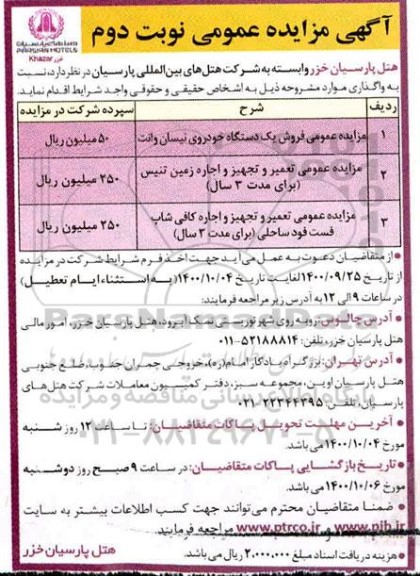 آگهی مزایده عمومی نوبت دوم
PARSIAN HOTELS
Khazar خزر
هتل پارسیان خزر وابسته به شرکت هتل‌های بین‌المللی پارسیان در نظر دارد، نسبت
به واگذاری موارد مشروحه ذیل به اشخاص حقیقی و حقوقی واجد شرایط اقدام نماید.
ردیف شرح سپرده شرکت در مزایده
۱ مزایده عمومی فروش یک دستگاه خودروی نیسان وانت ۵۰ میلیون ریال
۲ مزایده عمومی تعمیر و تجهیز و اجاره زمین تنیس
(برای مدت ۳ سال) ۲۵۰ میلیون ریال
۳ مزایده عمومی تعمیر و تجهیز و اجاره کافی شاپ
فست فود ساحلی (برای مدت ۳ سال) ۲۵۰ میلیون ریال
• از متقاضیان دعوت به عمل می‌آید جهت اخذ فرم شرایط شرکت در مزایده
از تاریخ ۱۴۰۰/۰۹/۲۵ لغایت تاریخ ۱۴۰۰/۱۰/۰۴ (به استثناء ایام تعطیل)
در ساعات ۹ الی ۱۲ به آدرس زیر مراجعه فرمایند:
• آدرس چالوس: روبه روی شهر توریستی نمک آبرود، هتل پارسیان خزر، امور مالی
هتل پارسیان خزر، تلفن: ۵۲۱۸۸۸۱۴-۰۱۱
• آدرس تهران: بزرگراه یادگار امام(ره)، خروجی چمران جنوب، ضلع جنوبی
هتل پارسیان اوین، مجموعه سبز، دفتر کمیسیون معاملات شرکت هتل‌های
پارسیان تلفن: ۲۲۳۴۴۳۹۵-۰۲۱
• آخرین مهلت تحویل پاکات متقاضیان: تا ساعت ۱۲ روز شنبه
مورخ ۱۴۰۰/۱۰/۰۴ می‌باشد.
• تاریخ بازگشایی پاکات متقاضیان: در ساعت ۹ صبح روز دوشنبه
مورخ ۱۴۰۰/۱۰/۰۶ می‌باشد.
• ضمنا متقاضیان محترم می‌توانند جهت کسب اطلاعات بیشتر به سایت
www.pih.ir و www.ptrco.ir مراجعه فرمایند.
• هزینه دریافت اسناد مبلغ ۲,۰۰۰,۰۰۰ ریال می‌باشد. هتل پارسیان خزر